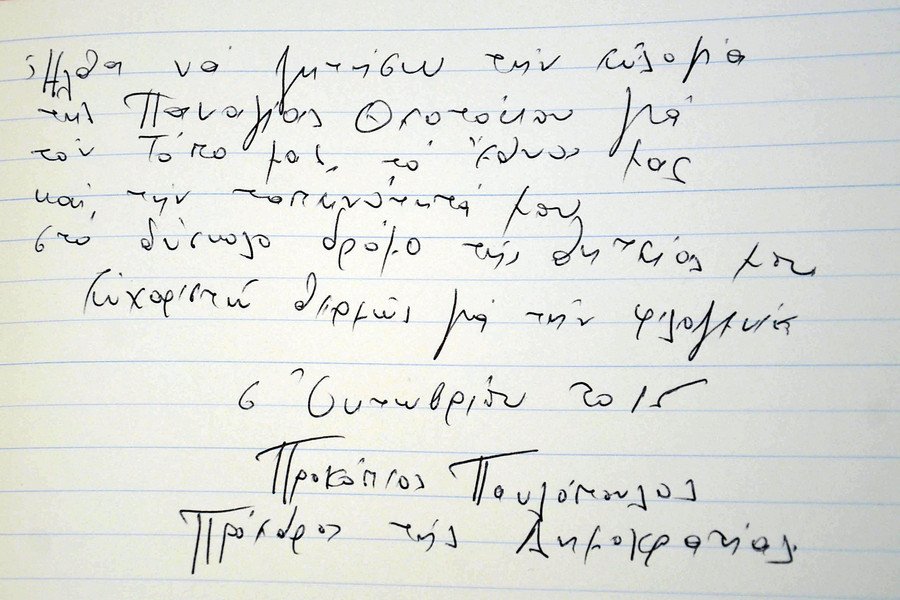 Ἦλθα νά ζητήσω τήν εὐλογία
τῆς Παναγίας Θεοτόκου γιά
τόν Τόπο μας, τό Ἔθνος μας
καί τήν ταπεινότητά μου
στό δύσκολο δρόμο τῆς θητείας μου
Εὐχαριστῶ θερμῶς γιά τήν φιλοξενία
6 Ὀκτωβρίου 2015
Προκόπιος Παυλόπουλος
Πρόεδρος τῆς Δημοκρατίας.